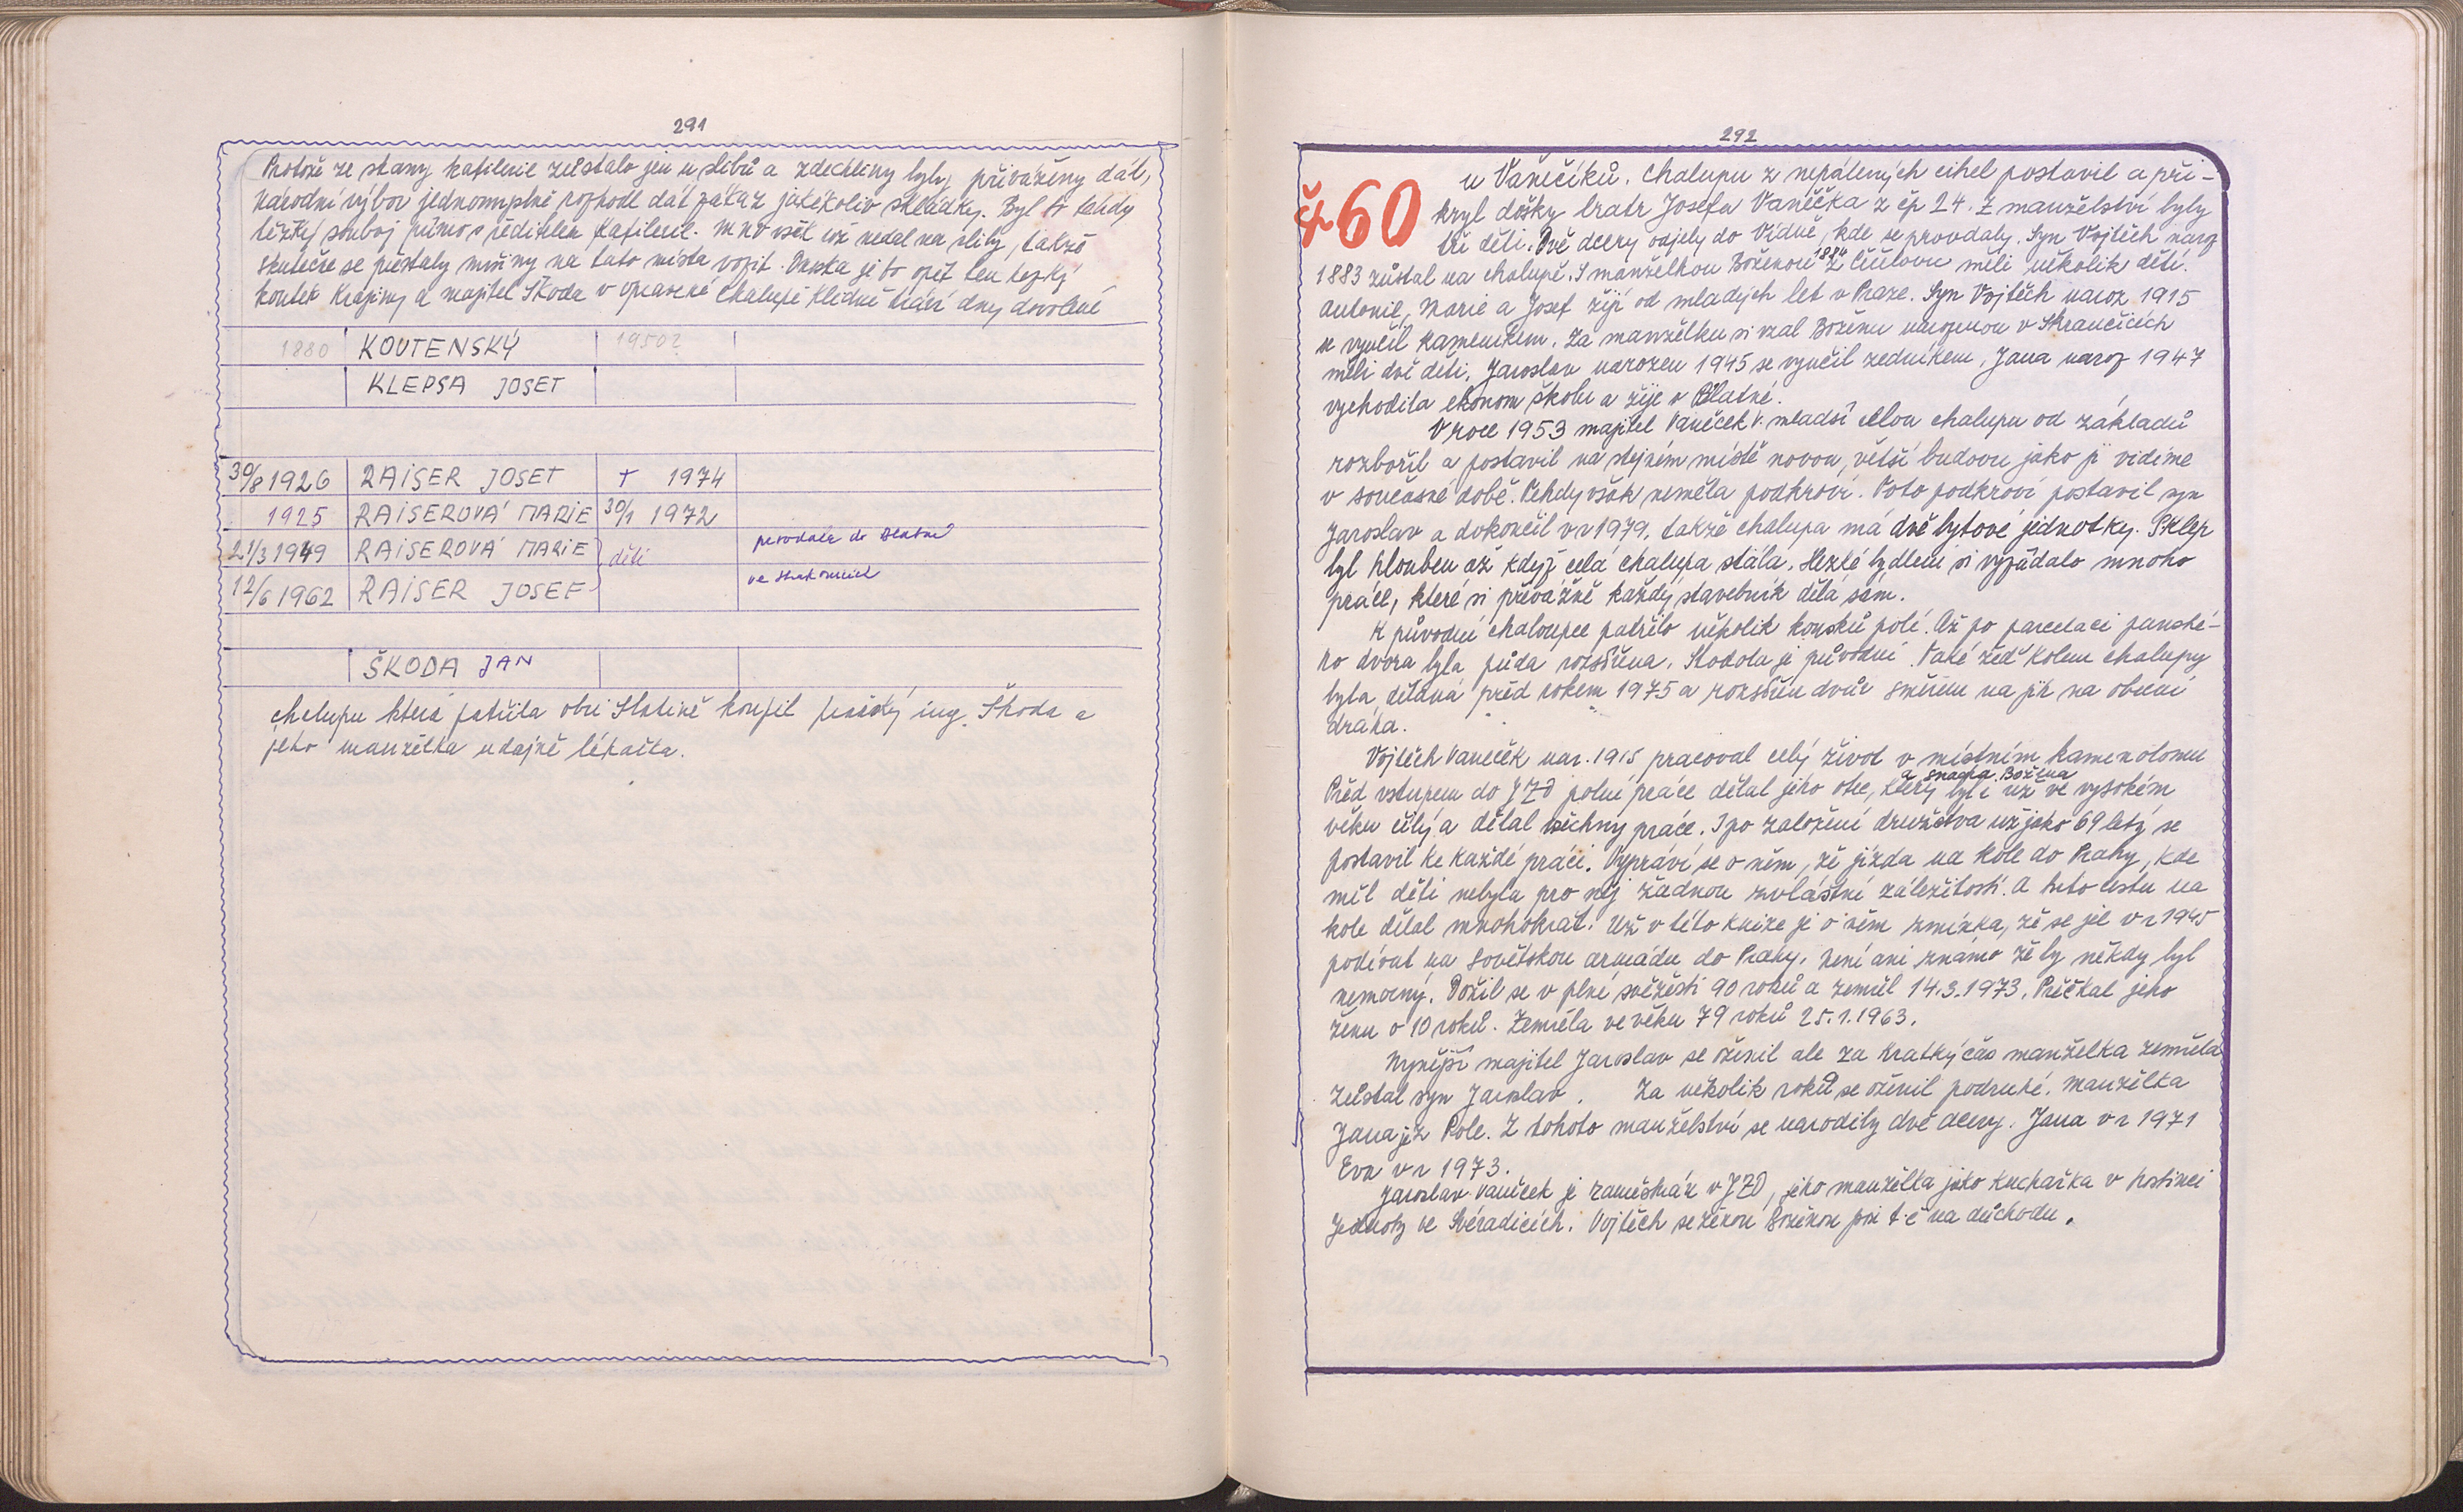 291
Protože ze strany kafilerie zůstalo jen u slibů a zdechliny byly přiváženy dál,
Národní výbor jednomyslně rozhodl dát zákaz jakékoliv skládky. Byl to tehdy
těžký souboj přímo s ředitelem Kafilerie. MNV však už nedal na sliby, takže
skutečně se přestaly mršiny na tato místa vozit. Dneska je to opět ten hezký
koutek Krajiny a majitel Škoda v opravené chalupě klidně tráví dny dovolené
1880 KOUTENSKÝ 1950?
KLEPSA JOSEF
30/8 1926 RAISER JOSEF † 1974
1925 RAISEROVÁ MARIE 30/1 1972
21/3 1949 RAISEROVÁ MARIE děti provdala do Blatné
12/6 1962 RAISER JOSEF ve Strakonicích
ŠKODA JAN
chalupu která patřila obci Slatině koupil pražský ing. Škoda a
jeho manželka udajně lékařka.
292
čp 60 u Vaněčíků. Chalupu z nepálených cihel postavil a při-
kryl došky bratr Josefa Vaněčka z čp 24. Z manželství byly
tři děti. Dvě dcery odjely do Vídně, kde se provdaly. Syn Vojtěch naroz
1883 zůstal na chalupě. S manželkou Boženou 1884 z měli několik dětí.
Antonie, Marie a Josef žijí od mladých let v Praze. Syn Vojtěch naroz 1915
se vyučil kameníkem. Za manželku si vzal Boženu narozenou v
měli dvě děti. Jaroslav narozen 1945 se vyučil zedníkem, Jana naroz 1947
vychodila ekonom školu a žije v Blatné.
V roce 1953 majitel Vaněček V. mladší celou chalupu od základů
rozbořil a postavil na stejném místě novou, větší budovu jako ji vidíme
v současné době. Tehdy však neměla podkroví. Toto podkroví postavil syn
Jaroslav a dokončil v r 1979, takže chalupa má dvě bytové jednotky. Sklep
byl hlouben až když celá chalupa stála. Hezké bydlení si vyžádalo mnoho
práce, které si převážně každý stavebník dělá sám.
K původní chaloupce patřilo několik kousků polí. Až po parcelaci panské-
ho dvora byla půda rozšířena. Stodola je původní. Také zeď kolem chalupy
byla dělaná před rokem 1975 a rozšířen dvůr směrem na jih na obecní
draha.
Vojtěch Vaneček nar. 1915 pracoval celý život v místním kamenolomu
Před vstupem do JZD polní práce dělal jeho otec, a snacha Božena který byl i už ve vysokém
věku čilý a dělal všechny práce. I po založení družstva už jako 69 letý se
postavil ke každé práci. Vypráví se o něm, že jízda na kole do Prahy, kde
měl děti nebyla pro něj žádnou zvláštní záležitostí. A tuto cestu na
kole dělal mnohokrát. Už v této knize je o něm zmínka, že se jel v r 1945
podívat na Sovětskou armádu do Prahy. Není ani známo že by někdy byl
nemocný. Dožil se v plné svěžesti 90 roků a zemřel 14.3.1973. Přečkal jeho
ženu o 10 roků. Zemřela ve věku 79 roků 25.1.1963.
Nynější majitel Jaroslav se oženil ale za krátký čas manželka zemřela
Zůstal syn Jaroslav. Za několik roků se oženil podruhé. Manželka
Jana je z Pole. Z tohoto manželství se narodily dvě dcery. Jana v r 1971
Eva v r 1973.
Jaroslav Vaněček je zaměstnán v JZD, jeho manželka jako kuchařka v hostinci
Jednoty ve Svéradicích. Vojtěch se ženou Boženou jsou t.č na důchodu.